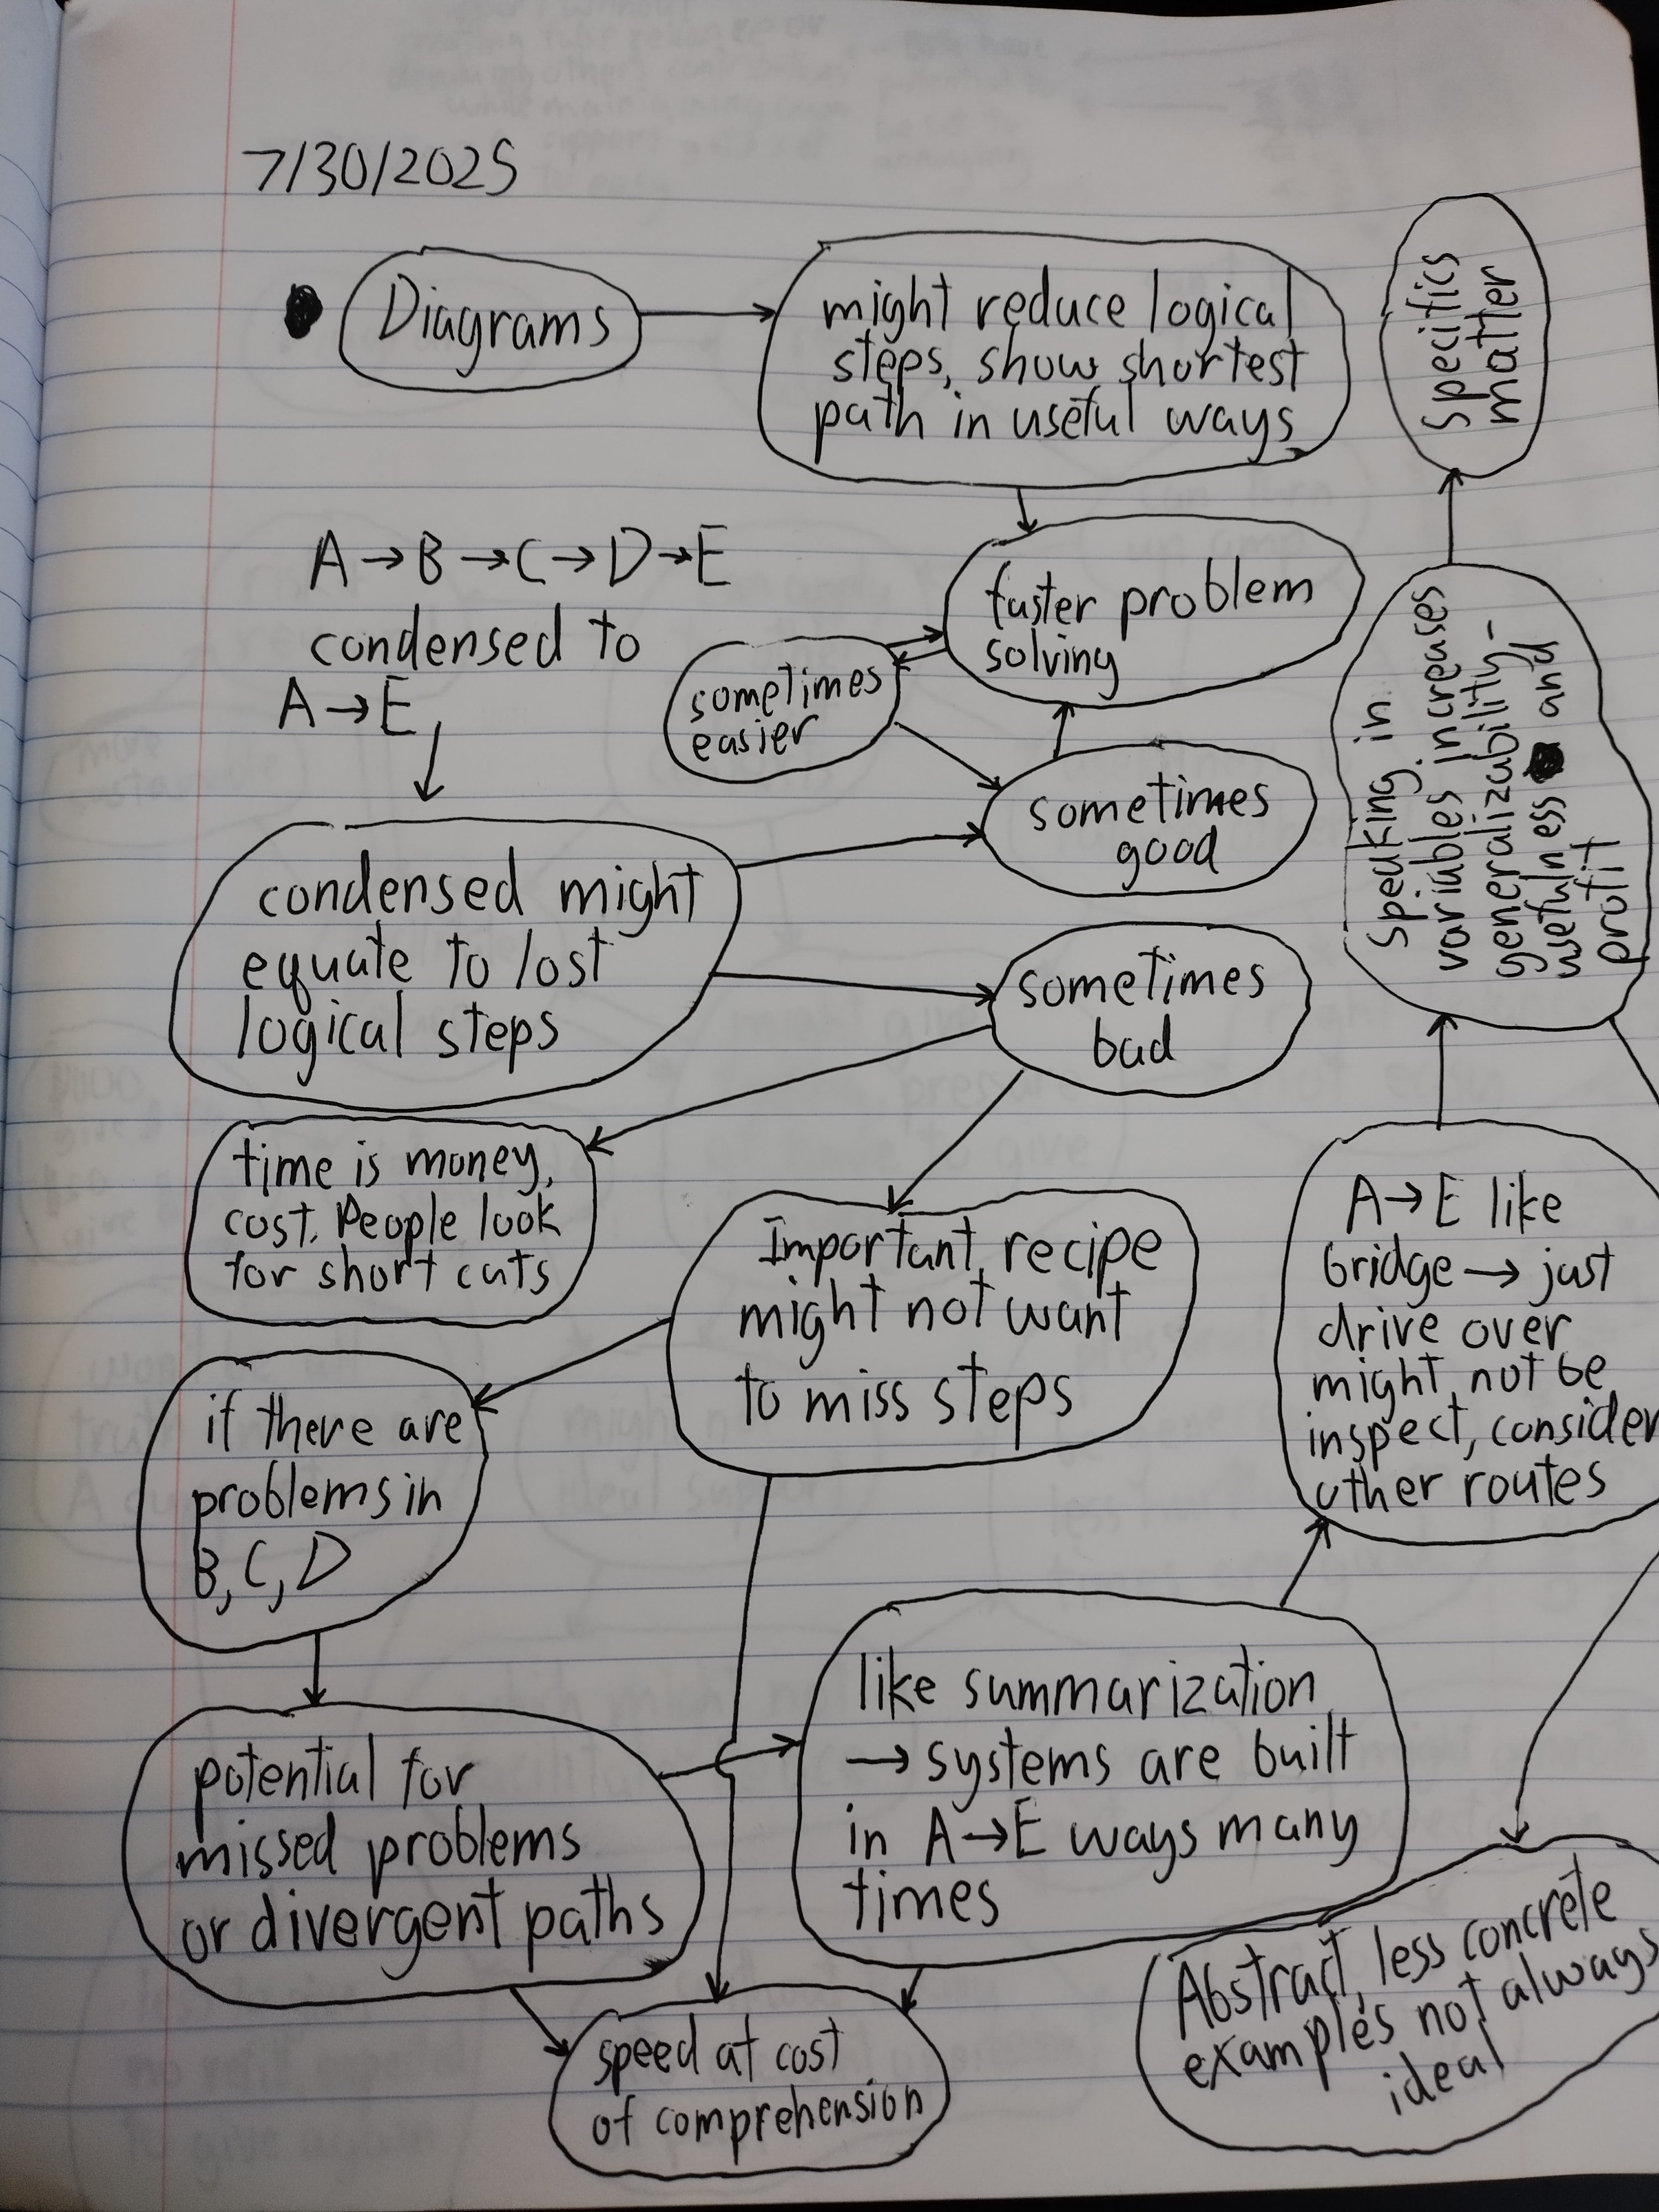 7/30/2025
Diagrams
might reduce logical
steps, show shortest
path in useful ways
Specifics
matter
A → B → C → D → E
condensed to
A → E
faster problem
solving
sometimes
easier
sometimes
good
Speaking in
variables increases
generalizability-
usefulness and
profit
condensed might
equate to lost
logical steps
sometimes
bad
time is money,
cost. People look
for short cuts
Important recipe
might not want
to miss steps
A → E like
bridge → just
drive over
might not be
inspect, consider
other routes
if there are
problems in
B, C, D
like summarization
→ systems are built
in A → E ways many
times
potential for
missed problems
or divergent paths
speed at cost
of comprehension
Abstract, less concrete
examples not always
ideal